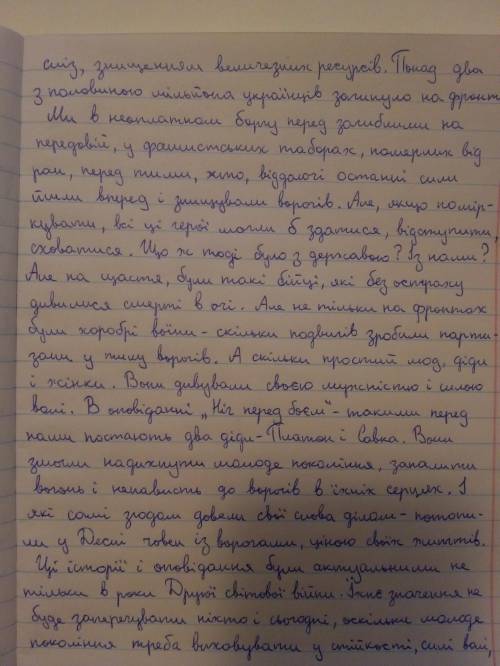 сліз, знищенням величезних ресурсів. Понад два
з половиною мільйона українців загинуло на фронт
Ми в неоплатном боргу перед загиблими на
передовій, у фашистських таборах, померлих від
ран, перед тими, хто, віддаючи останні сили
йшли вперед і знищували ворогів. Але, якщо помір-
кувати, всі ці герої могли б здатися, відступити,
сховатися. Що ж тоді було з державою? Із нами?
Але на щастя, були такі бійці, які без остраху
дивилися смерті в очі. Але не тільки на фронтах
були хоробрі воїни - скільки подвигів зробили парти-
зани у тилу ворогів. А скільки простий люд, діди
і жінки. Вони дивували своєю мужністю і силою
волі. В оповіданні „Ніч перед боєм" - такими перед
нами постають два діди - Платон і Савка. Вони
змогли надихнути молоде покоління, запалити
вогонь і ненависть до ворогів в їхніх серцях. І
які самі згодом довели свої слова ділом - потопи-
ли у Десні човен із ворогами, ціною своїх життів.
Ці історії і оповідання були актуальними не
тільки в роки Другої світової війни. Їхнє значення не
буде заперечувати ніхто і сьогодні, оскільки молоде
покоління треба виховувати у стійкості, силі волі,